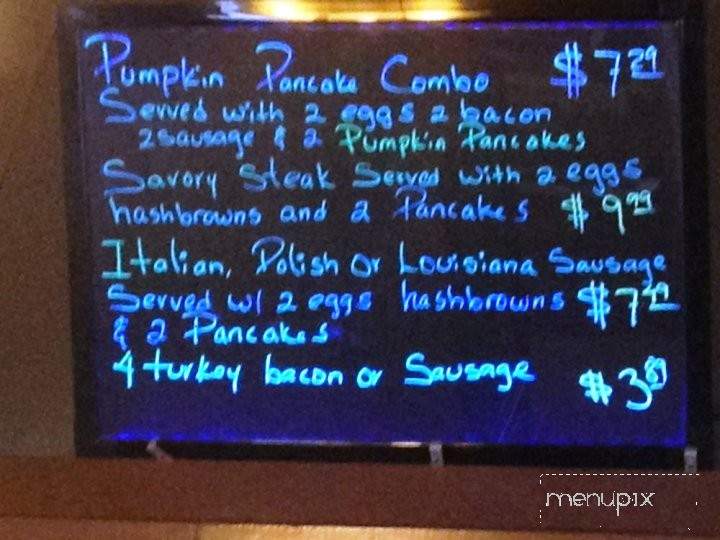 Pumpkin Pancake Combo $7.29
Served with 2 eggs 2 bacon
2 sausage & 2 Pumpkin Pancakes
Savory Steak Served with 2 eggs
hashbrowns and 2 Pancakes $9.99
Italian, Polish or Louisiana Sausage
Served w/ 2 eggs hashbrowns $7.29
& 2 Pancakes
4 turkey bacon or Sausage $3.89
menupix